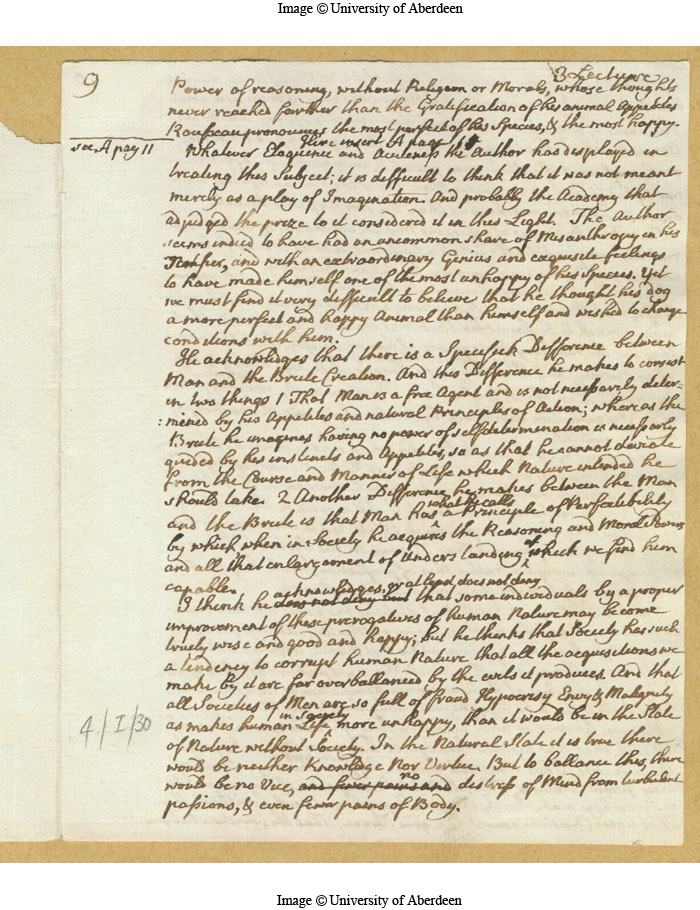 Image © University of Aberdeen
9
3 Lecture
Power of reasoning, without Religion or Morals, whose thoughts
never reached farther than the Gratification of his animal Appetites
Rousseau pronounces the most perfect of his Species, & the most happy.
see A pag 11
Here insert A page 11
Whatever Eloquence and Acuteness the Author has displayed in
treating this Subject; it is difficult to think that it was not meant
merely as a play of Imagination. And probably the Academy that
adjudged the prize to it considered it in this Light. The Author
seems indeed to have had an uncommon share of Misanthropy in his
Temper, and with an extraordinary Genius and exquisite feelings
to have made himself one of the most unhappy of his Species. Yet
we must find it very difficult to believe that he thought his dog
a more perfect and happy Animal than himself and wished to change
conditions with him.
He acknowledges that there is a Specifick Difference between
Man and the Brute Creation. And this Difference he makes to consist
in two things 1 That Man is a free Agent and is not necessarily deter-
:mined by his Appetites and natural Principles of Action; whereas the
Brute he imagines having no power of selfdetermination is necessarly
guided by his instincts and Appetites, so as that he cannot deviate
from the Course and Manner of Life which Nature intended he
should take. 2 Another Difference he makes between the Man
what he calls
and the Brute is that Man has a Principle of Perfectibility
by which when in Society he acquires the Reasoning and Moral Powers
and all that enlargement of Understanding of which we find him
capable.
acknowledges, or at least does not deny
I think he does not deny but that some individuals by a proper
improvement of these prerogatives of human Nature may become
truely wise and good and happy; but he thinks that Society has such
a tendency to corrupt human Nature that all the acquisitions we
make by it are far overballanced by the evils it produces. And that
all Societies of Men are so full of fraud Hypocrisy Envy & Malignity
in Society
as makes human Life more unhappy, than it would be in the State
of Nature without Society. In the Natural State it is true there
would be neither Knowledge Nor Virtue, But to ballance this, there
no
would be no Vice, and fewer pains and distress of Mind from turbulent
passions, & even fewer pains of Body.
4/I/30
Image © University of Aberdeen